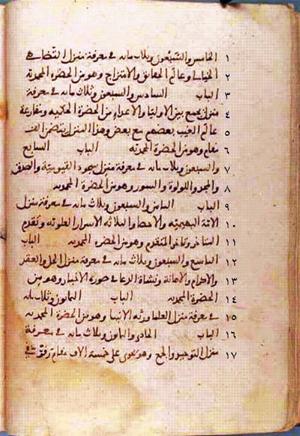 ١ الخامس والسبعون وثلاث مائة في معرفة منزل التضاهي
٢ الخيالي وعالم الحقائق والامتزاج وهو من الحضرة المحمدية
٣ الباب السادس والسبعون وثلاث مائة في معرفة
٤ منزل يجمع بين الاولياء والاعداء من الحضرة الحكمية ومقارعة
٥ عالم الغيب بعضهم مع بعض وهذا المنزل يتضمن الف
٦ مقام وهو من الحضرة المحمدية الباب السابع
٧ والسبعون وثلاث مائة في معرفة منزل سجود القيومية والصدق
٨ والمجد واللولوة والسور وهو من الحضرة المحمدية
٩ الباب الثامن والسبعون وثلاث مائة في معرفة منزل
١٠ الامة البهيمية والاحصا والثلاثة الاسرار العلوية وتقدم
١١ المتاخر وتاخر المتقدم وهو من الحضرة المحمدية الباب
١٢ التاسع والسبعون وثلاث مائة في معرفة منزل الحل والعقد
١٣ والاكرام والاهانة ونشاة الدعا في صورة الاخبار وهو من
١٤ الحضرة المحمدية الباب الثمانون وثلاث مائة
١٥ في معرفة منزل العلما ورثة الانبيا وهو من الحضرة المحمدية
١٦ الباب الحادي والثمانون وثلاث مائة في معرفة
١٧ منزل التوحيد والجمع وهو يحوي على خمسة الاف مقام رفرفي